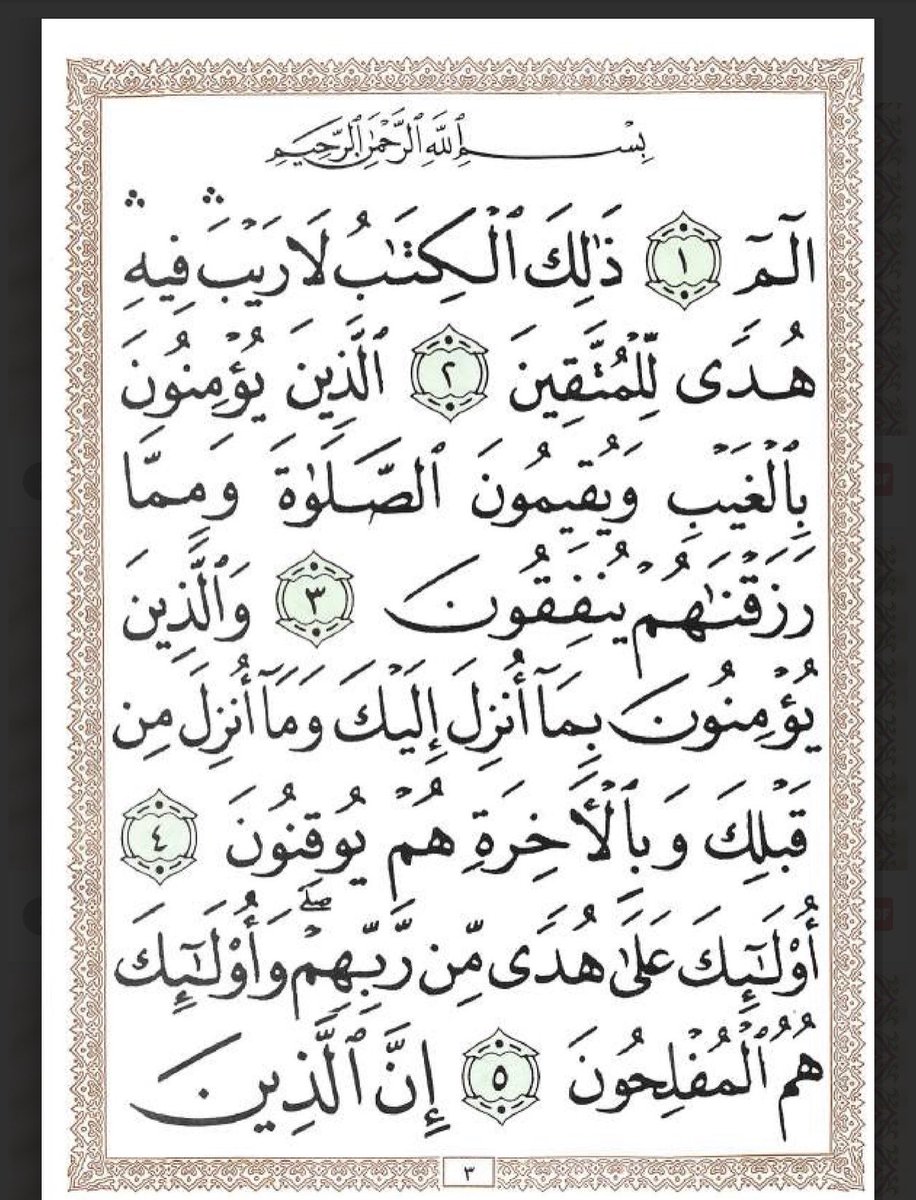 بِسْمِ ٱللَّهِ ٱلرَّحْمَٰنِ ٱلرَّحِيمِ
الٓمٓ ١ ذَٰلِكَ ٱلْكِتَٰبُ لَا رَيْبَ ۛ فِيهِ ۛ
هُدًى لِّلْمُتَّقِينَ ٢ ٱلَّذِينَ يُؤْمِنُونَ
بِٱلْغَيْبِ وَيُقِيمُونَ ٱلصَّلَوٰةَ وَمِمَّا
رَزَقْنَٰهُمْ يُنفِقُونَ ٣ وَٱلَّذِينَ
يُؤْمِنُونَ بِمَآ أُنزِلَ إِلَيْكَ وَمَآ أُنزِلَ مِن
قَبْلِكَ وَبِٱلْأَخِرَةِ هُمْ يُوقِنُونَ ٤
أُو۟لَٰٓئِكَ عَلَىٰ هُدًى مِّن رَّبِّهِمْ ۖ وَأُو۟لَٰٓئِكَ
هُمُ ٱلْمُفْلِحُونَ ٥ إِنَّ ٱلَّذِينَ
٣